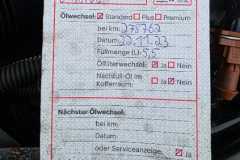 Ölwechsel: ☒ Standard ☐ Plus ☐ Premium
bei km: 275762
Datum: 22.11.23
Füllmenge (L): 5,5
Ölfilterwechsel: ☒ Ja ☐ Nein
Nachfüll-Öl im
Kofferraum: ☐ Ja ☒ Nein
Nächster Ölwechsel:
bei km:
Datum
oder Serviceanzeige: ☒ Ja